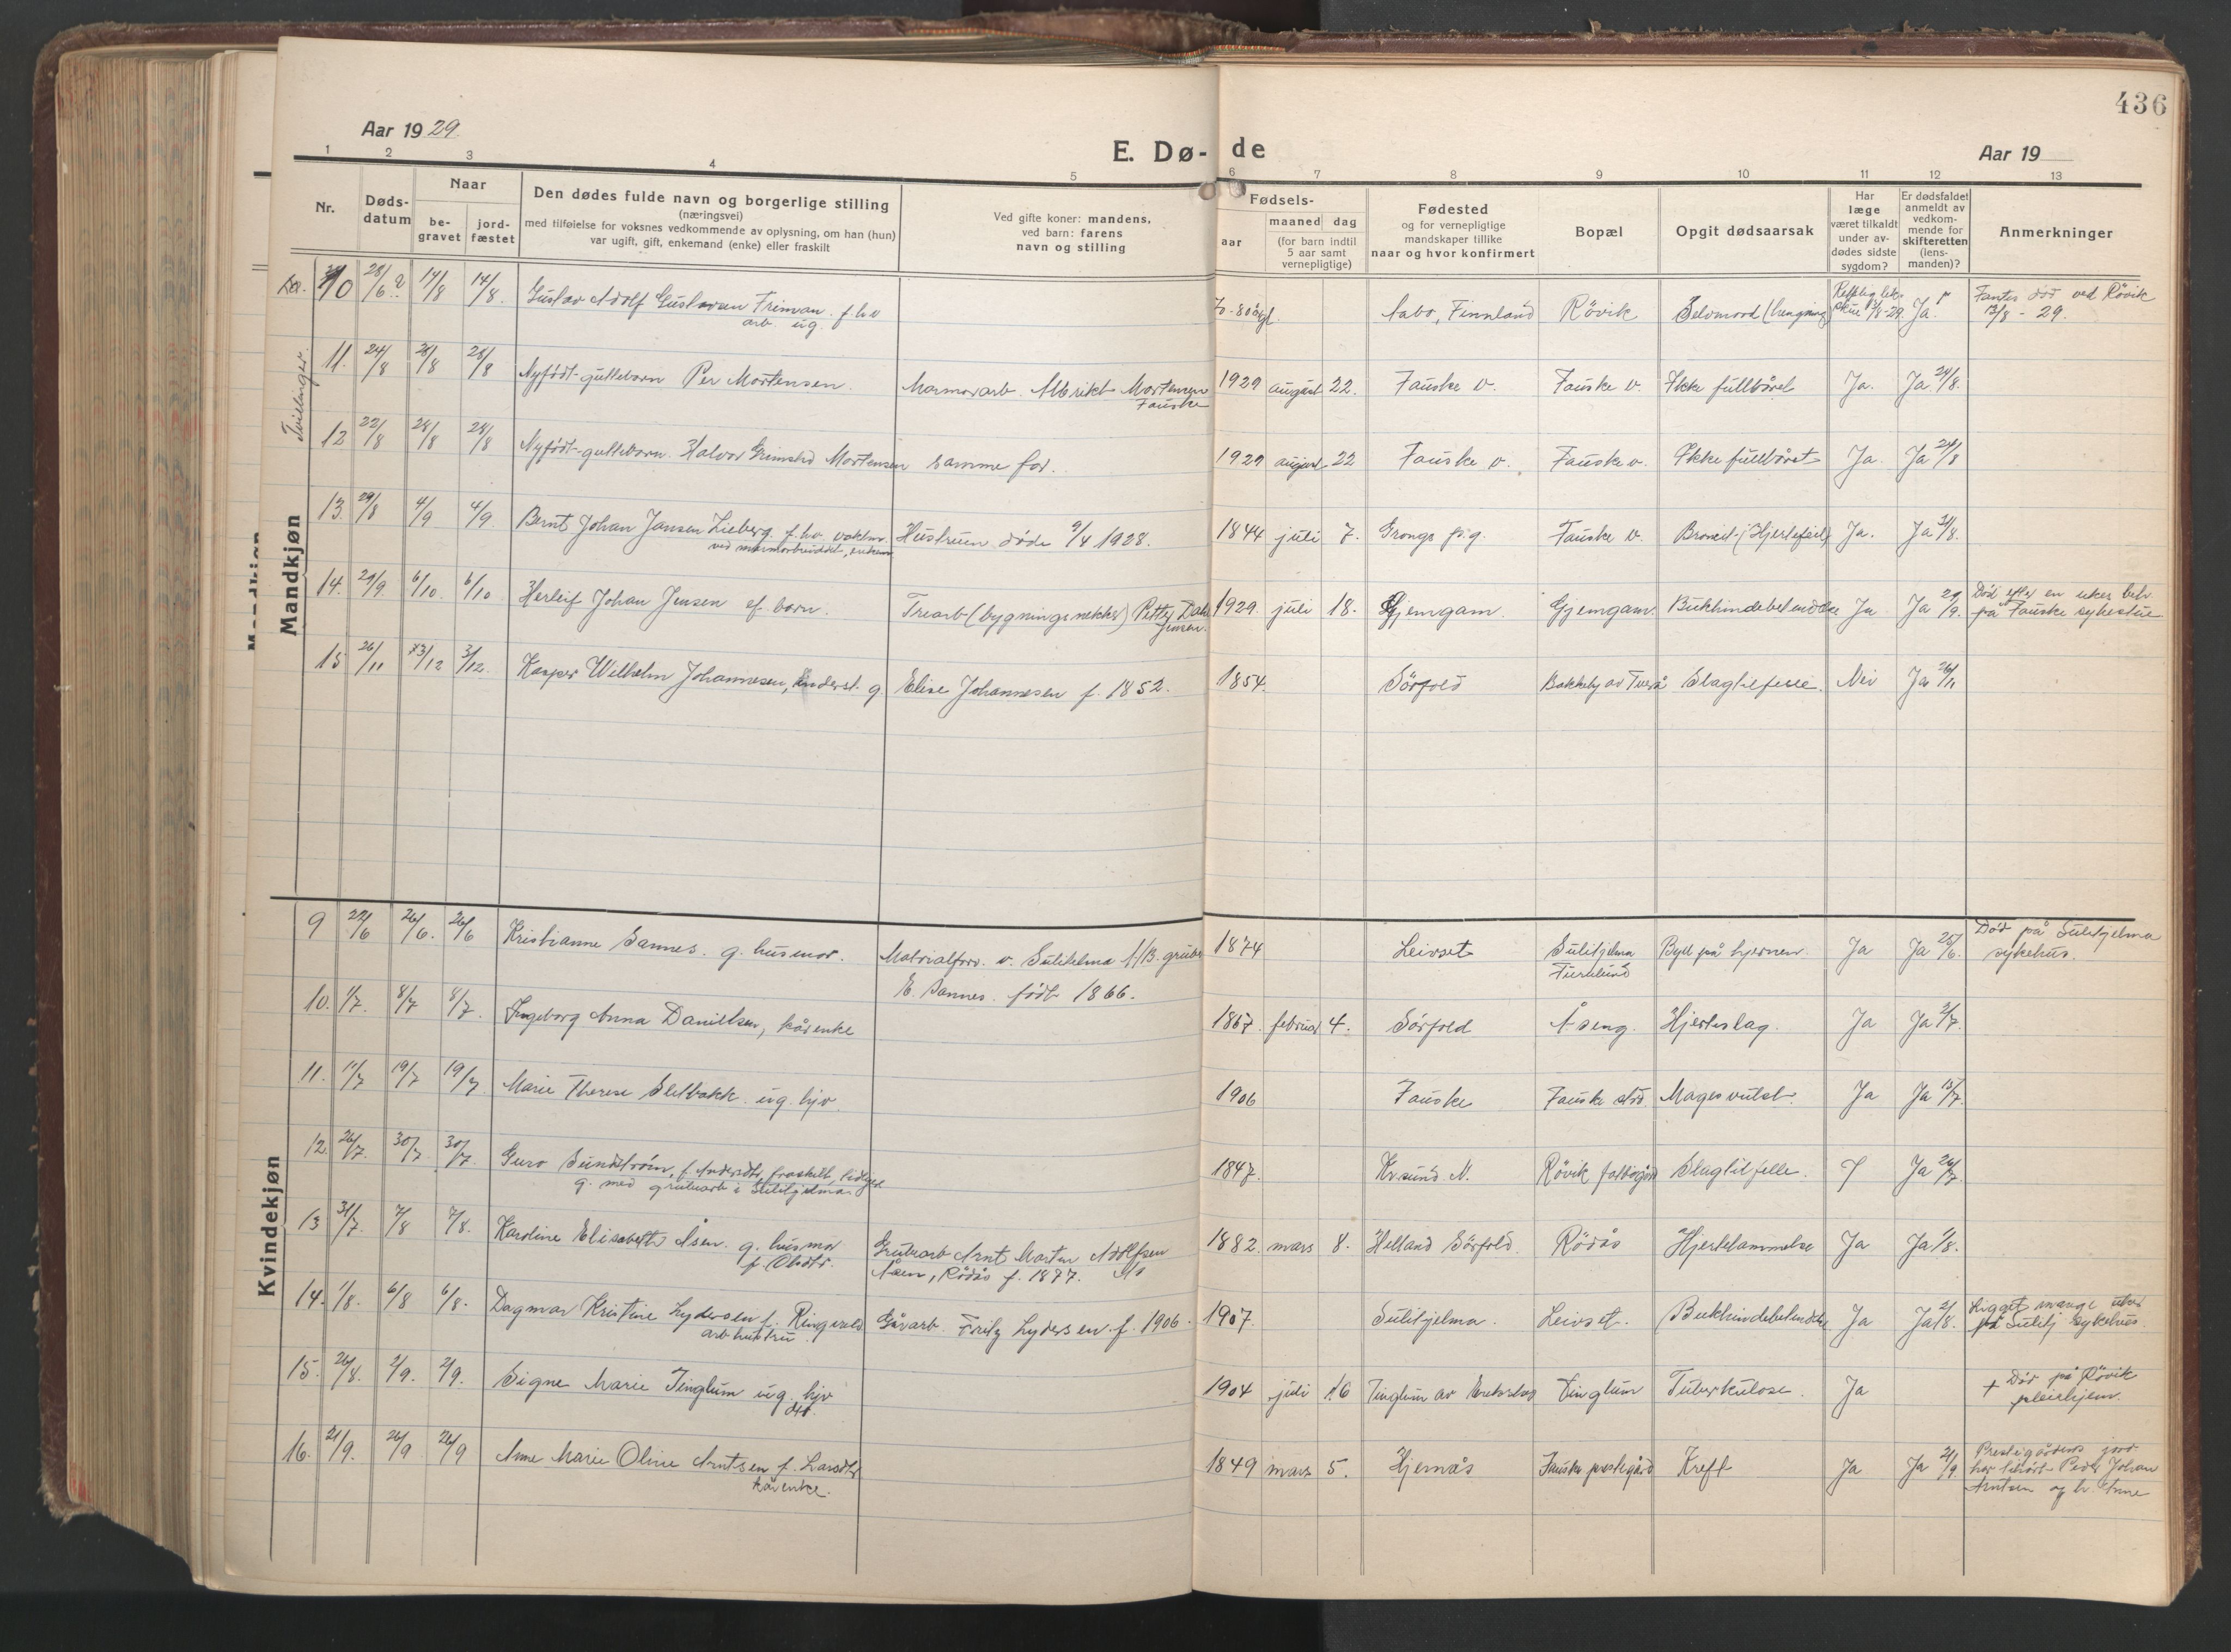 436
Aar 1929.
E. Dø- de
Aar 19
1 2 3 4 5 6 7 8 9 10 11 12 13
Nr.
Døds-
datum
Naar
be-
gravet
jord-
fæstet
Den dødes fulde navn og borgerlige stilling
(næringsvei)
med tilføielse for voksnes vedkommende av oplysning, om han (hun)
var ugift, gift, enkemand (enke) eller fraskilt
Ved gifte koner: mandens,
ved barn: farens
navn og stilling
Fødsels-
aar
maaned dag
(for barn indtil
5 aar samt
vernepligtige)
Fødested
og for vernepligtige
mandskaper tillike
naar og hvor konfirmert
Bopæl
Opgit dødsaarsak
Har
læge
været tilkaldt
under av-
dødes sidste
sygdom?
Er dødsfaldet
anmeldt av
vedkom-
mende for
skifteretten
(lens-
manden)?
Anmerkninger
Mandkjøn
10 28/6? 17/8 14/8. Gustav Adolf Gustavsen Friman. f.hv Aabo, Finnland Røvik Selvmord (hengning) Ja. Fantes død ved Røvik
arb. ug. 13/8 - 29.
Tvillinger.
11. 24/8 28/8 28/8 Nyfødt guttebarn Per Mortensen. Marmorarb. Albrikt Mortensen 1929 august 22. Fauske v. Fauske v. Ikke fullbåret Ja. Ja 24/8.
Fauske
12 22/8 28/8 28/8 Nyfødt guttebarn. Halvor Grimstad Mortensen samme far. 1929 august 22 Fauske v. Fauske v. Ikke fullbåret Ja. Ja 24/8
13. 29/8 4/9 4/9. Bernt Johan Jansen Lieberg. f.hv vaktm. Hustruen døde 9/4 1928. 1844 juli 7. Grong p.g. Fauske v. (Hjertefeil) Ja. Ja 31/8.
ved marmorbruddet, enkem
14. 29/9 6/10 6/10 Herleif Johan Jensen ef. barn. Trearb (bygningssnekker) Petter Dahl 1929. juli 18. Gjemgam. Gjemgam. Bukhindebetendelse Ja Ja 29/9. Død efter en ukes beh.
Jensen. på Fauske sykestue
15 26/11 3/12 3/12. Kasper Wilhelm Johannesen, g. Elise Johannesen f. 1852. 1854. Sørfold Bakkeby av Tverå Slagtilfelle. Nei Ja 26/11
Kvindekjøn
9 22/6 26/6. 26/6 Kristianne Sannes. g. husmor. Matrialforv. v. Sulitelma A/B. grube 1874 Leivset Sulitjelma Byll på hjernen. Ja Ja 25/6. Død på Sulitjelma
Furulund sykehus.
E. Sannes. født 1866.
10. 1/7. 8/7 8/7. Ingeborg Anna Danielsen, kårenke 1867. februar 4. Sørfold Åseng. Hjerteslag. Ja Ja 2/7.
11. 11/7 19/7 19/7 Marie Therese Sletbakk. ug. hjv. 1906 Fauske Fauske stød. Magesvulst. Ja Ja 13/7.
12. 26/7. 30/7 30/7. Guro Sundstrøm, f. Andersdtr, fraskilt, tidligere 1847. Kr.sund. N. Røvik fattiggård Slagtilfelle. ? Ja 26/7.
g. med grubearb i Sulitjelma.
13 31/7. 7/8 7/8. Karoline Elisabeth Åsen. g. husmor Grubearb Arnt Morten Adolfsen 1882. mars 8. Helland Sørfold. Rødås Hjertelammelse Ja Ja 1/8.
f. Olsdtr. Åsen, Rødås f. 1877.
14. 1/8. 6/8 6/8. Dagmar Kristine Lydersen f. Ringvold Gårarb. Fritz Lydersen. f. 1906. 1907. Sulitjelma. Leivset. Bukhindebetendelse Ja Ja 2/8. Ligget mange uker
arb.hustru på Sulitj sykehus.
15. 26/8. 2/9. 2/9. Signe Marie Tinglum ug. hjv 1904 juli 16 Tinglum av Erikstad Tinglum Tuberkulose. Ja + Død på Røvik
dtr. pleiehjem.
16. 21/9. 26/9 26/9 Anne Marie Oline Arntsen f. Larsdtr 1849 mars 5. Hjemås Fauske prestegård Kreft Ja Ja 21/9. Prestegårdens jord
kårenke. har tilhørt Peder Johan
Arntsen og h. Anne